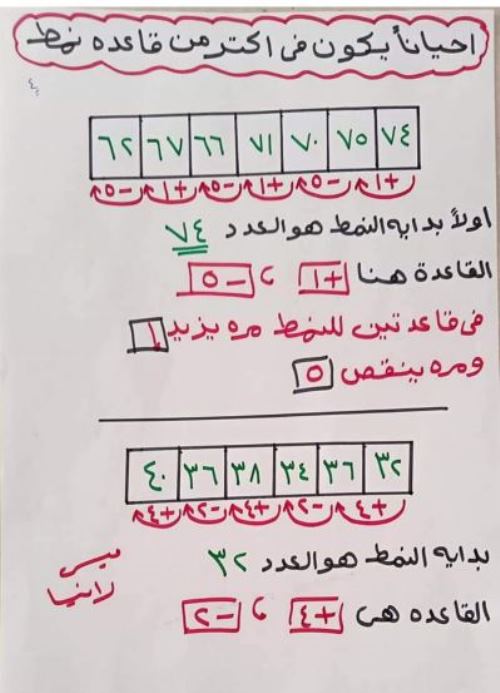 احياناً يكون فى اكتر من قاعده نمط
٧٤ ٧٥ ٧٠ ٧١ ٦٦ ٦٧ ٦٢
+١ -٥ +١ -٥ +١ -٥
اولاً بدايه النمط هو العدد ٧٤
القاعدة هنا +١ ، -٥
فى قاعدتين للنمط مره يزيد ١
ومره بينقص ٥
٣٢ ٣٦ ٣٤ ٣٨ ٣٦ ٤٠
+٤ -٢ +٤ -٢ +٤
بدايه النمط هو العدد ٣٢
القاعده هى +٤ ، -٢
ميس
لانيا